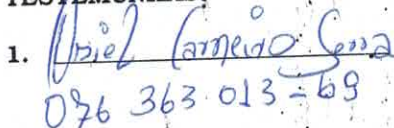 1. Uziel Carneiro Serra
076 363 013-69